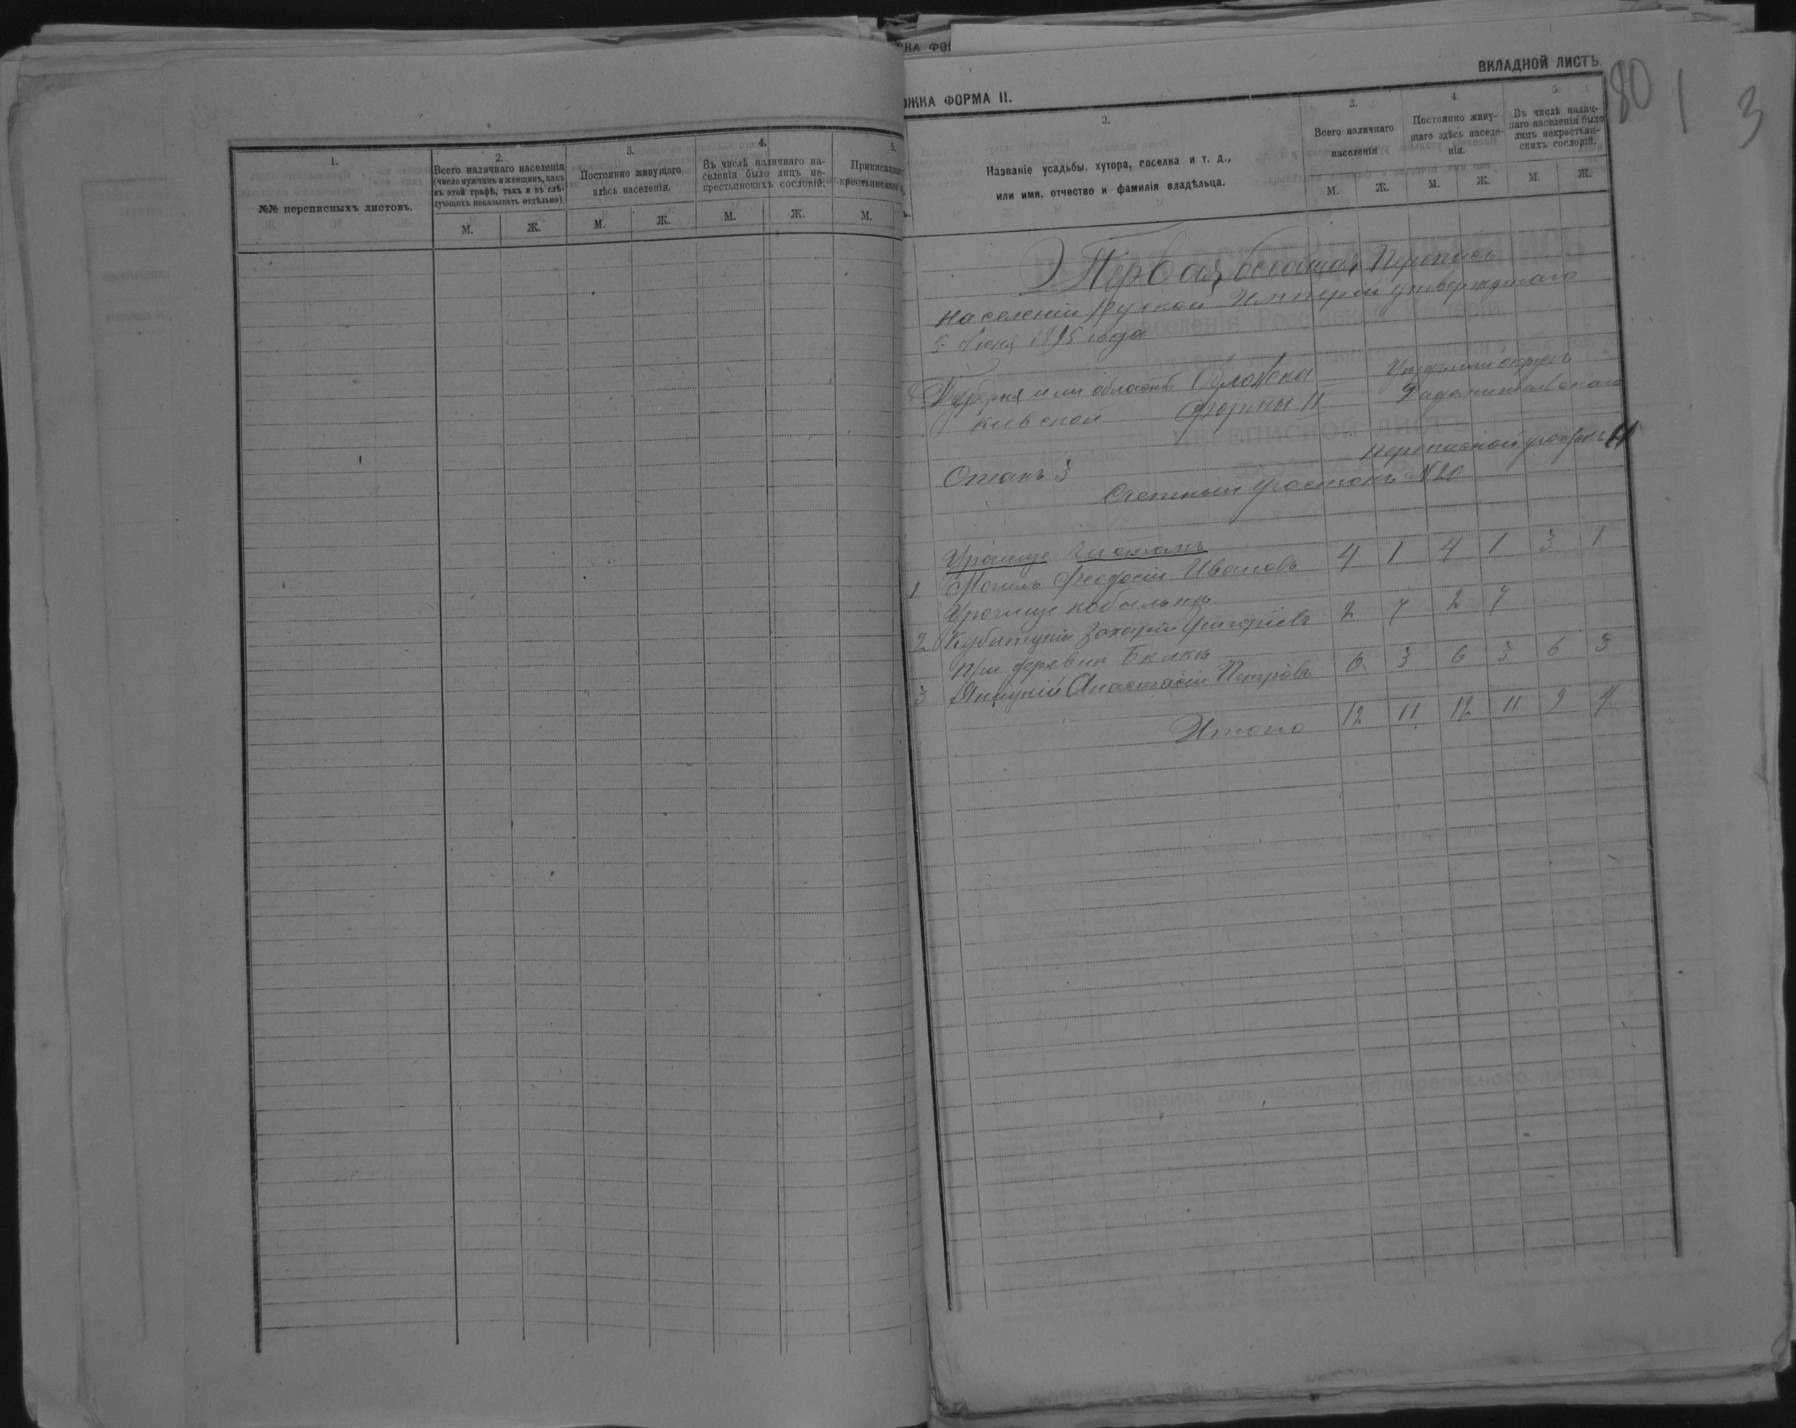 1.
№№ переписныхъ листовъ.
2.
Всего наличнаго населенія
(число мужчинъ и женщинъ, какъ
въ этой графѣ, такъ и въ слѣ-
дующихъ показывать отдѣльно).
М. Ж.
3.
Постоянно живущаго
здѣсь населенія.
М. Ж.
4.
Въ числѣ наличнаго на-
селенія было лицъ не-
крестьянскихъ сословій.
М. Ж.
5.
М.
ЖКА ФОРМА II.
ВКЛАДНОЙ ЛИСТЪ.
80 1 3
2.
Названіе усадьбы, хутора, поселка и т. д.,
или имя, отчество и фамилія владѣльца.
3.
Всего наличнаго
населенія
М. Ж.
4.
Постоянно живу-
щаго здѣсь населе-
нія.
М. Ж.
5.
Въ числѣ налич-
наго населенія было
лицъ некрестьян-
скихъ сословій.
М. Ж.
Первая всеобщая Перепись
населенія Руской Имперіи утвержденаго
5 Іюня 1895 года
Губерня или область Обложки
Кіевской Формы II
Станъ 3
Счетный участокъ №20
Урочище
1 Феодосій Ивановъ 4 1 4 1 3 1
Урочище
2 Захарій Григоріевъ 2 7 2 7
При деревнѣ Белки
3 Яницкій Анастасій Петровъ 6 3 6 3 6 3
Итого 12 11 12 11 9 4